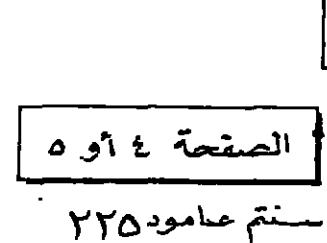 الصفحة ٤ أو ٥
سنتم عامود ٢٢٥